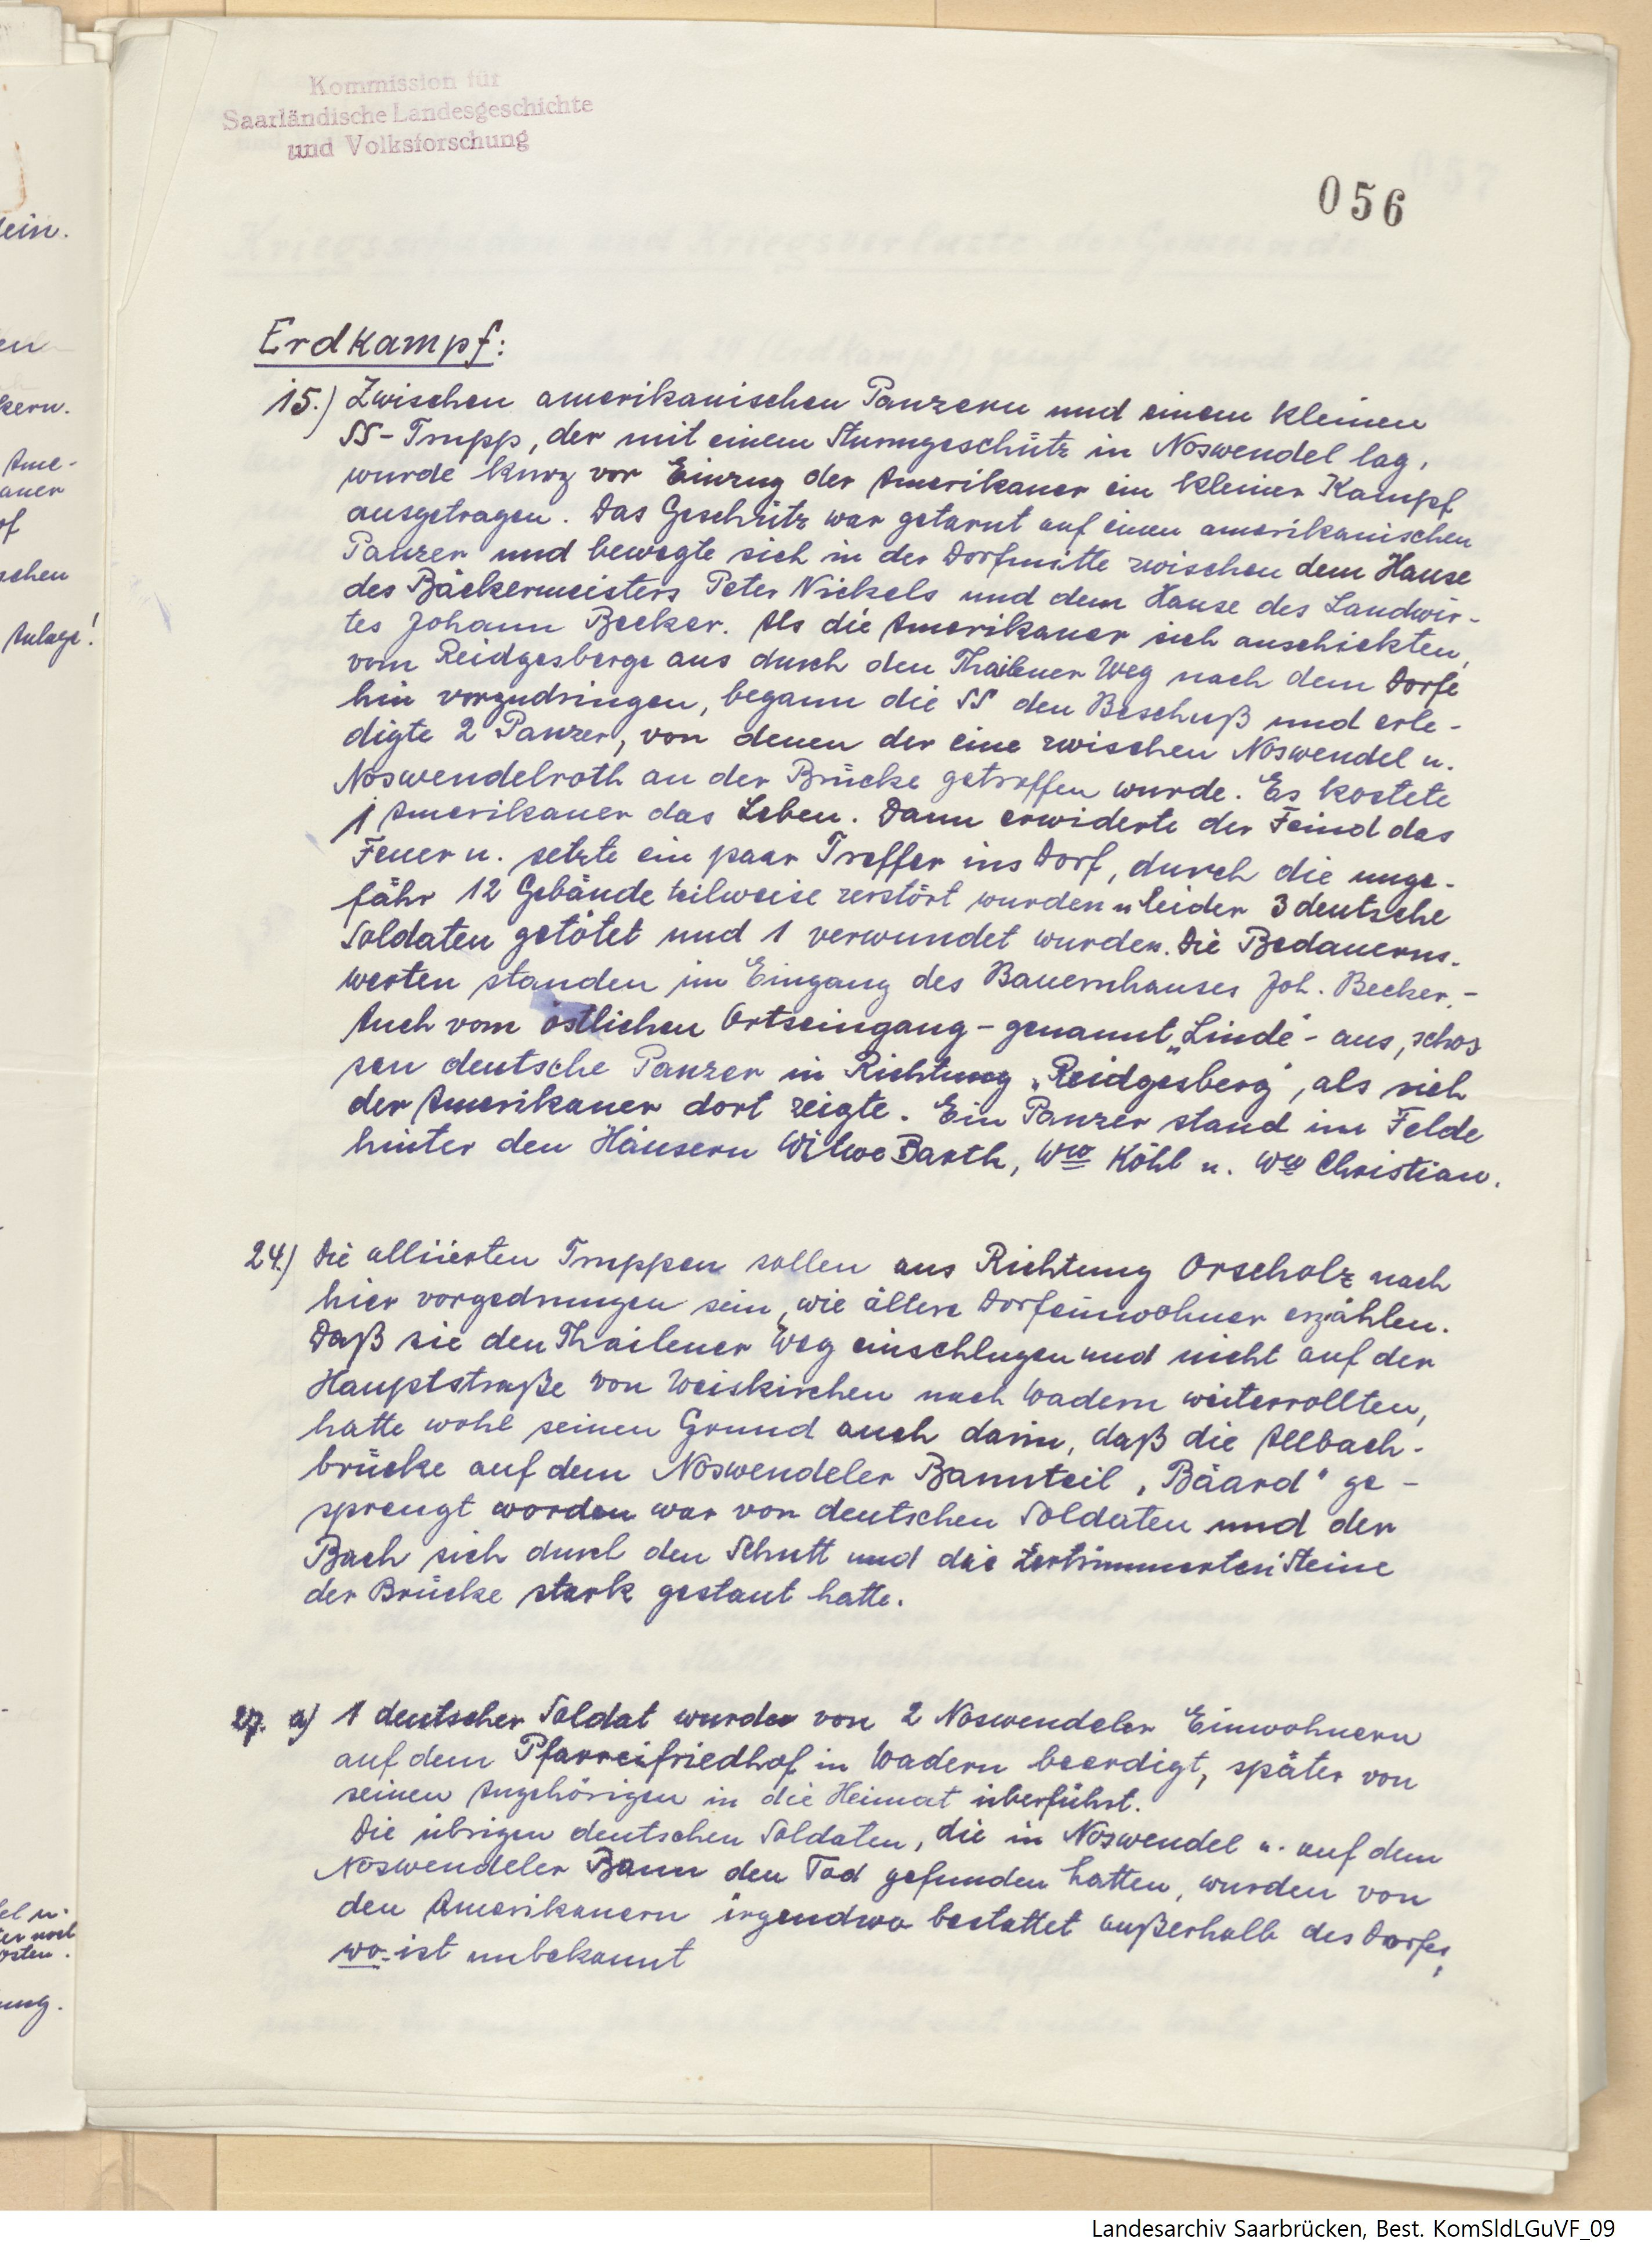 Kommission für
Saarländische Landesgeschichte
und Volksforschung
056
Erdkampf:
15.) Zwischen amerikanischen Panzern und einem kleinen
SS-Trupp, der mit einem Sturmgeschütz in Noswendel lag,
wurde kurz vor Einzug der Amerikaner ein kleiner Kampf
ausgetragen. Das Geschütz war getarnt auf einen amerikanischen
Panzer und bewegte sich in der Dorfmitte zwischen dem Hause
des Bäckermeisters Peter Nickels und dem Hause des Landwir-
tes Johann Becker. Als die Amerikaner sich anschickten,
vom Reidgesberge aus durch den Thailener Weg nach dem Dorfe
hin vorzudringen, begann die SS den Beschuß und erle-
digte 2 Panzer, von denen der eine zwischen Noswendel u.
Noswendelroth an der Brücke getroffen wurde. Es kostete
1 Amerikaner das Leben. Dann erwiderte der Feind das
Feuer u. setzte ein paar Treffer ins Dorf, durch die unge-
fähr 12 Gebäude teilweise zerstört wurden u leider 3 deutsche
Soldaten getötet und 1 verwundet wurden. Die Bedauerns-
werten standen im Eingang des Bauernhauses Joh. Becker.-
Auch vom östlichen Ortseingang - genannt „Linde" - aus, schos
sen deutsche Panzer in Richtung „Reidgesberg", als sich
der Amerikaner dort zeigte. Ein Panzer stand im Felde
hinter den Häusern Witwe Barth, Ww Köhl u. Ww Christian.
24.) Die alliierten Truppen sollen aus Richtung Orscholz nach
hier vorgedrungen sein, wie ältere Dorfeinwohner erzählen.
Daß sie den Thailener Weg einschlugen und nicht auf der
Hauptstraße von Weiskirchen nach Wadern weiterrollten,
hatte wohl seinen Grund auch darin, daß die Allbach-
brücke auf dem Noswendeler Bannteil „Bäard" ge-
sprengt worden war von deutschen Soldaten und der
Bach sich durch den Schutt und die zertrümmerten Steine
der Brücke stark gestaut hatte.
27. a) 1 deutscher Soldat wurde von 2 Noswendeler Einwohnern
auf dem Pfarreifriedhof in Wadern beerdigt, später von
seinen Angehörigen in die Heimat überführt.
Die übrigen deutschen Soldaten, die in Noswendel u. auf dem
Noswendeler Bann den Tod gefunden hatten, wurden von
den Amerikanern irgendwo bestattet außerhalb des Dorfes,
wo-ist unbekannt
ein.
kern.
Ame-
schen
Anlage!
Landesarchiv Saarbrücken, Best. KomSldLGuVF_09